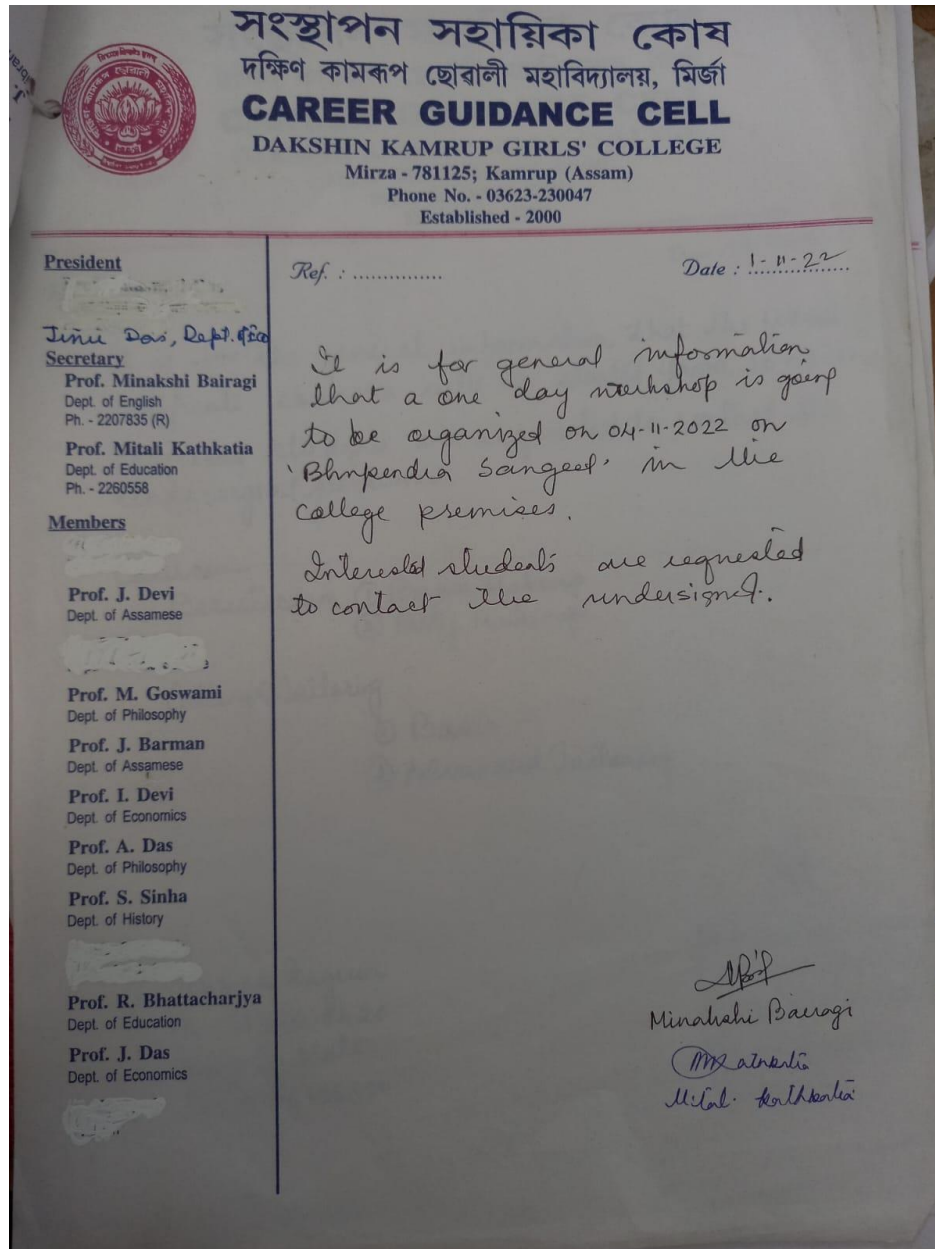 সংস্থাপন সহায়িকা কোষ
দক্ষিণ কামৰূপ ছোৱালী মহাবিদ্যালয়, মিৰ্জা
CAREER GUIDANCE CELL
DAKSHIN KAMRUP GIRLS' COLLEGE
Mirza - 781125; Kamrup (Assam)
Phone No. - 03623-230047
Established - 2000
President
Jinu Das, Dept. of Eco
Secretary
Prof. Minakshi Bairagi
Dept. of English
Ph. - 2207835 (R)
Prof. Mitali Kathkatia
Dept. of Education
Ph. - 2260558
Members
Prof. J. Devi
Dept. of Assamese
Prof. M. Goswami
Dept. of Philosophy
Prof. J. Barman
Dept. of Assamese
Prof. I. Devi
Dept. of Economics
Prof. A. Das
Dept. of Philosophy
Prof. S. Sinha
Dept. of History
Prof. R. Bhattacharjya
Dept. of Education
Prof. J. Das
Dept. of Economics
Ref. : ...............
Date : 1-11-22
It is for general information
that a one day workshop is going
to be organized on 04-11-2022 on
'Bhupendra Sangeet' in the
college premises.
Interested students are requested
to contact the undersigned.
Minakshi Bairagi
Mitali Kathkatia